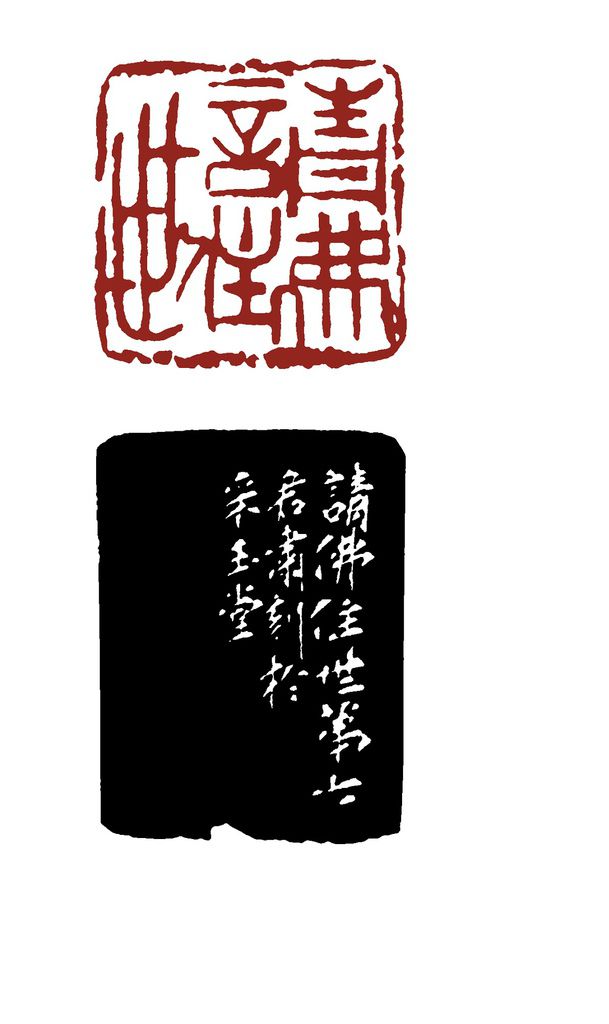 請佛住世
請佛住世第六
君肅刻於
采玉堂